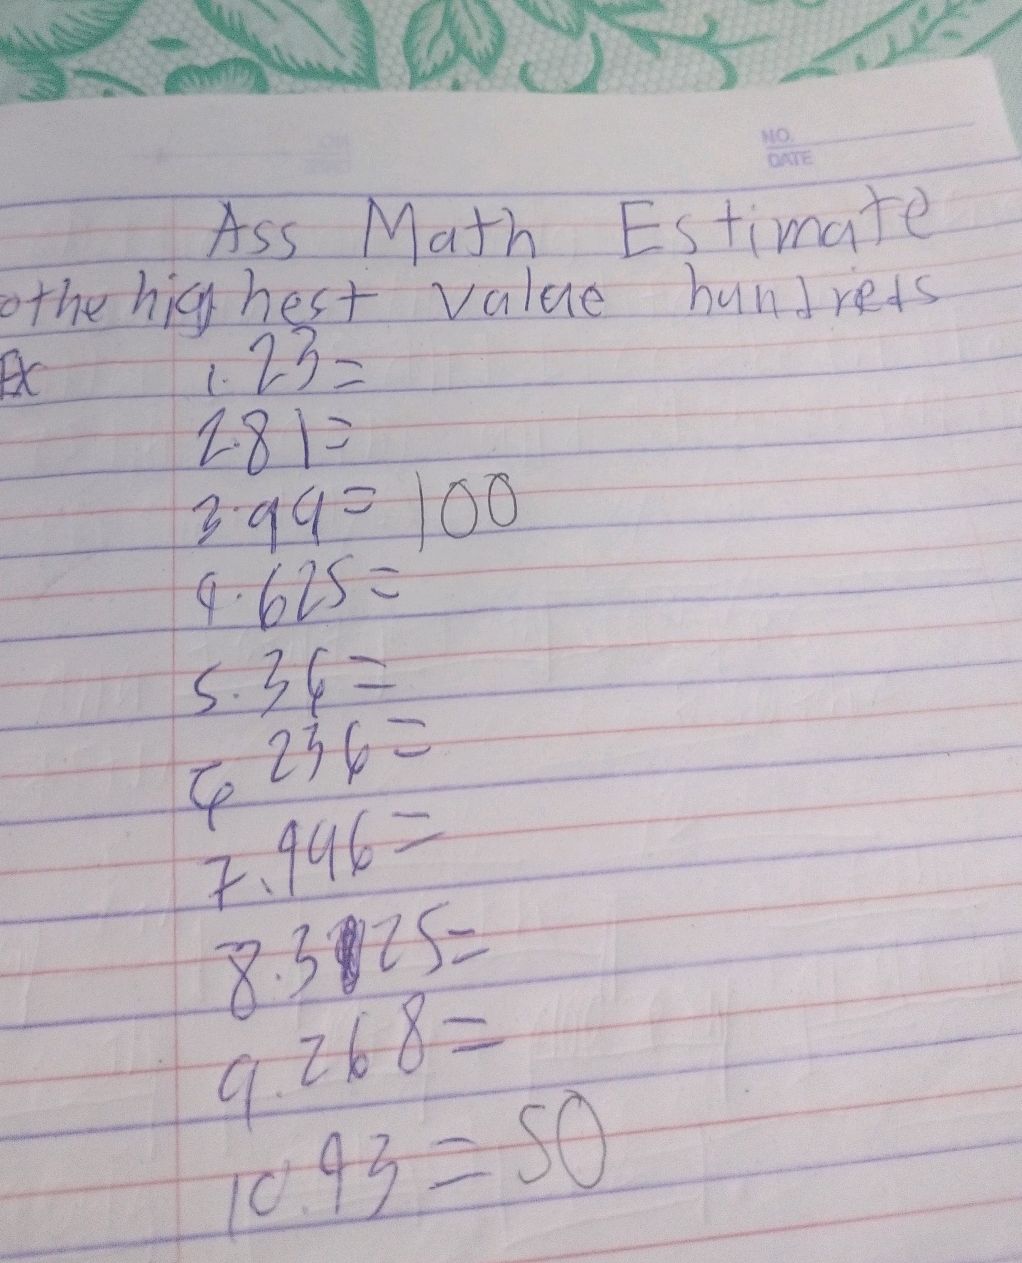 NO.
DATE
Ass Math Estimate
othe highest value hundreds
Ex 1. 23=
2. 81=
3. 99= 100
4. 625=
5. 36=
6 236=
7. 996=
8. 325=
9. 268=
10. 93= 50